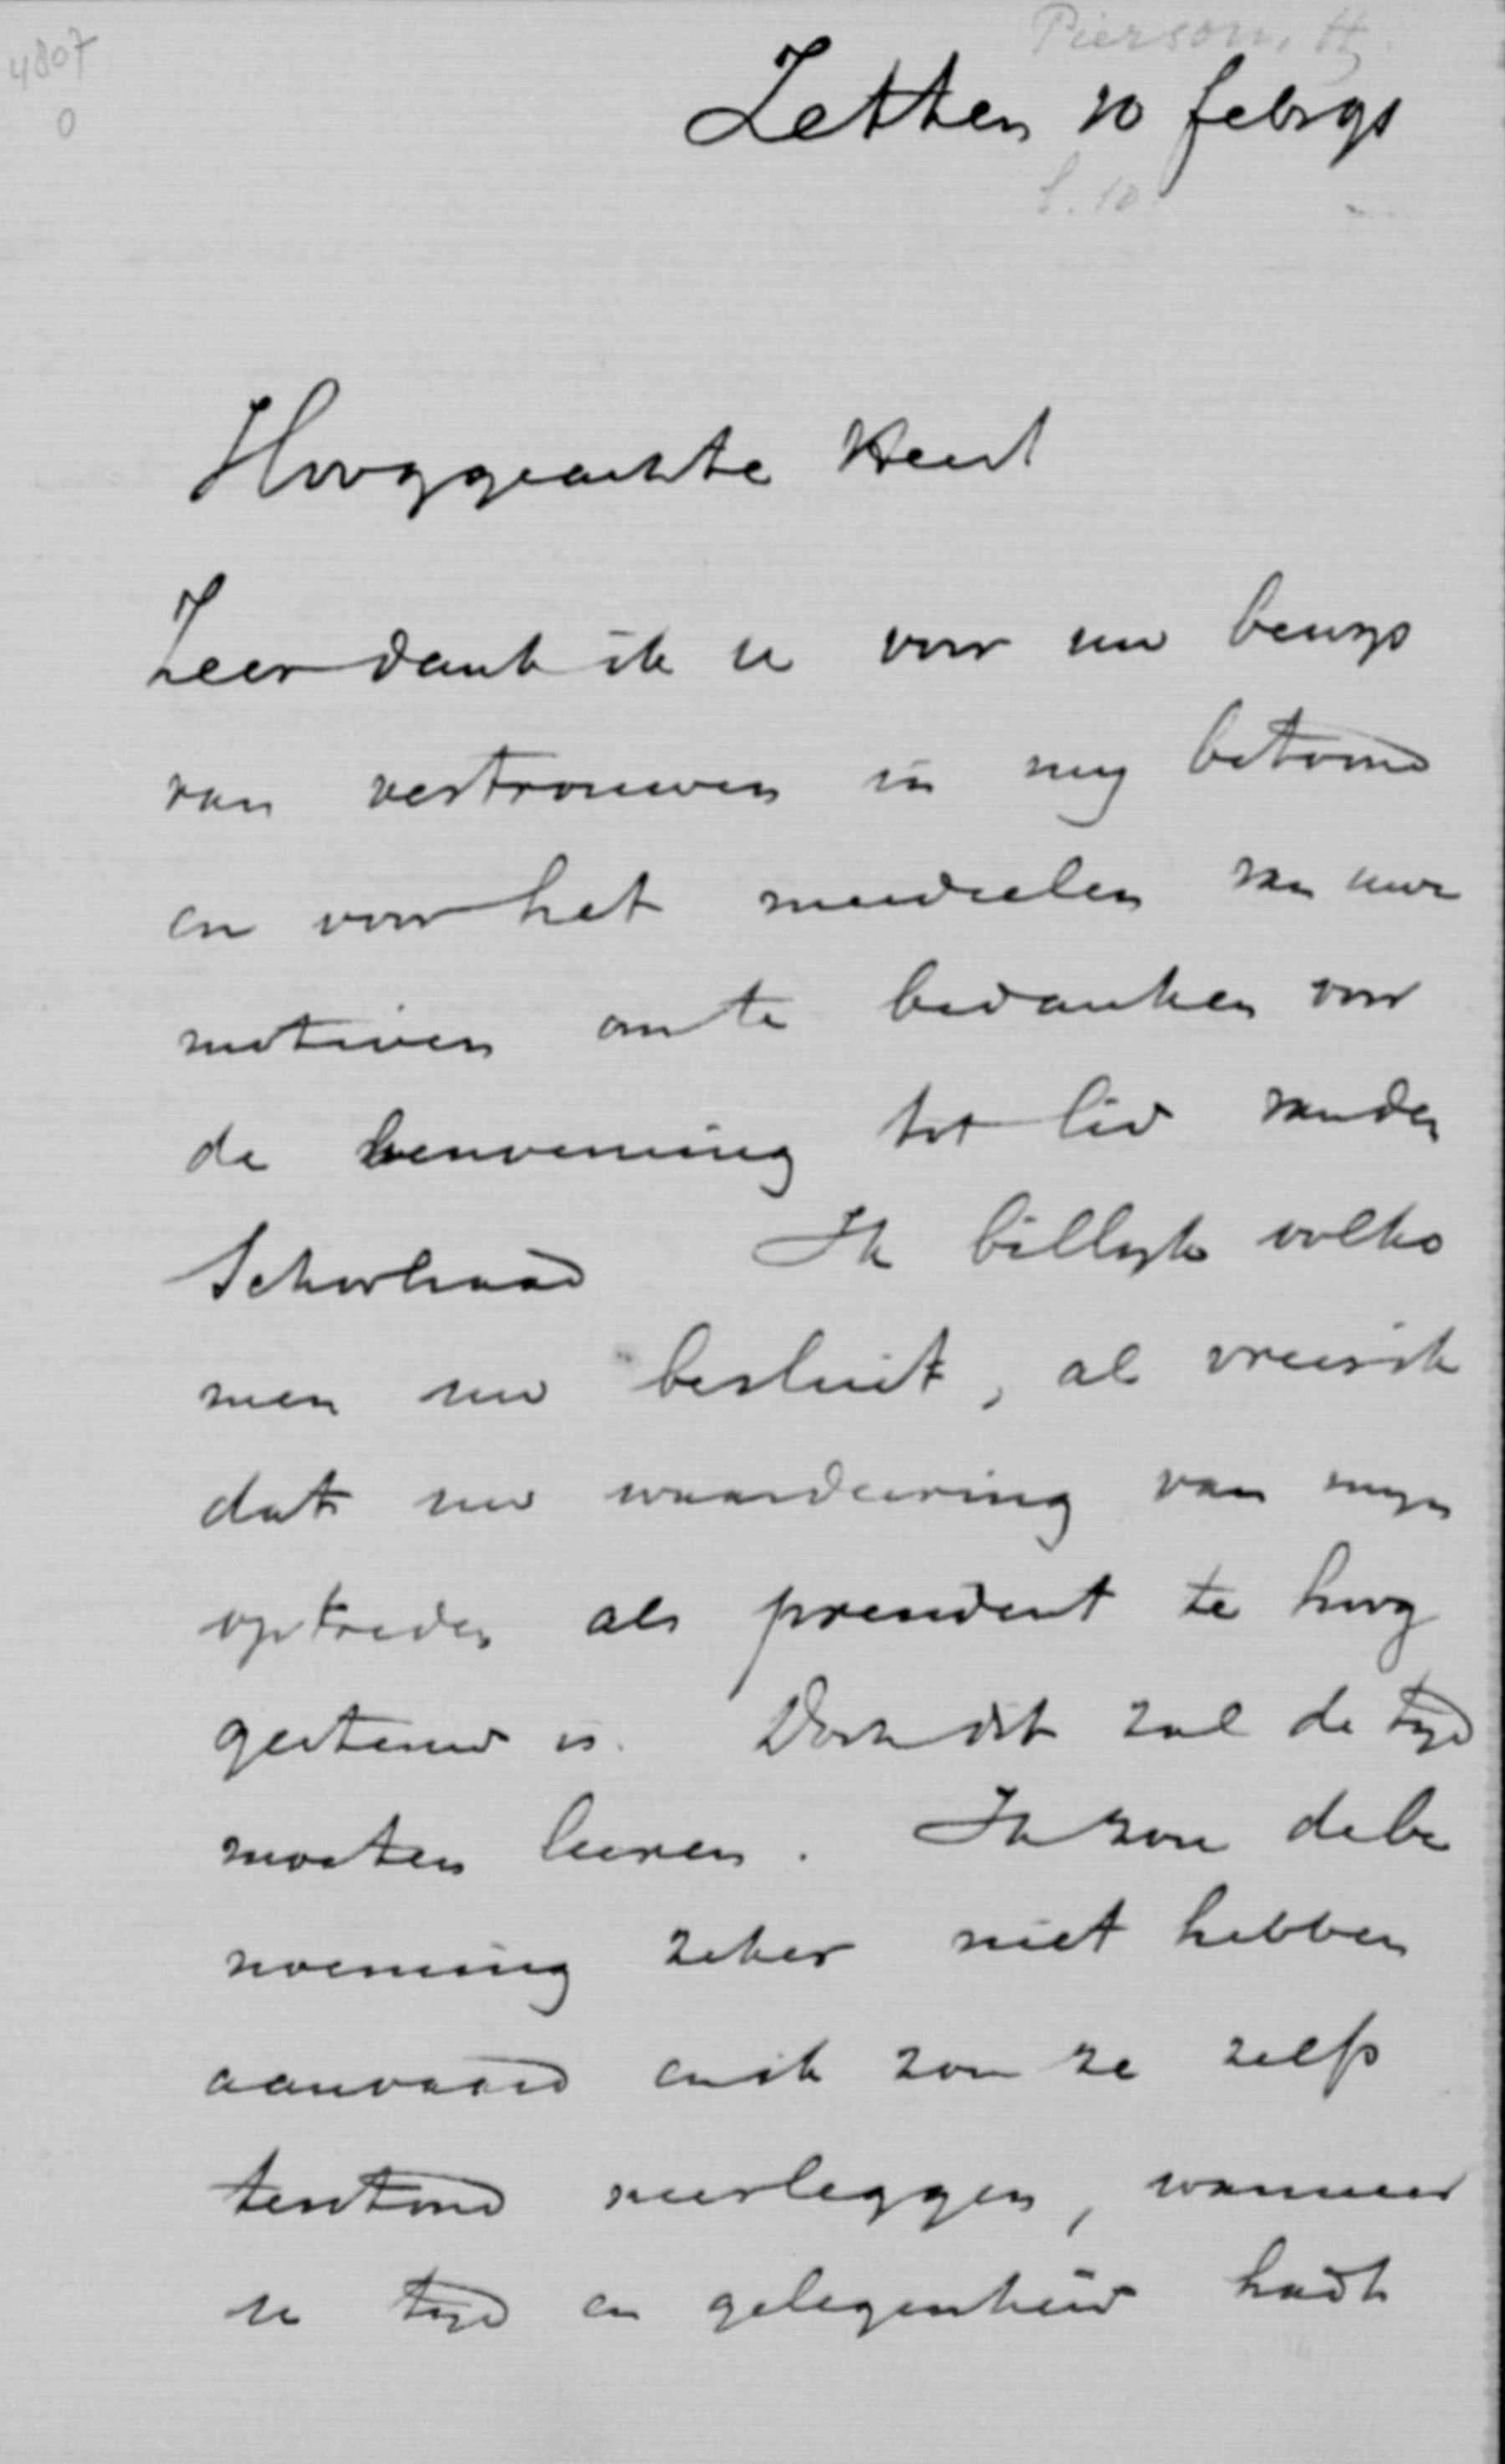 4807
0
Pierson, H.
Zetten 10 febr 91
b. 10
Hooggeachte Heer!
Zeer dank ik u voor uw bewys
van vertrouwen in my betoond
en voor het meedeelen van uwe
motieven om te bedanken voor
de benoeming tot lid van den
Schoolraad Ik billyk volko
men uw besluit, al vrees ik
dat uw waardeering van myn
optreden als president te hoog
gestemd is. Doch dit zal de tyd
moeten leeren. Ik zou de be
noeming zeker niet hebben
aanvaard en ik zou ze zelfs
terstond neerleggen, wanneer
u tyd en gelegenheid hadt